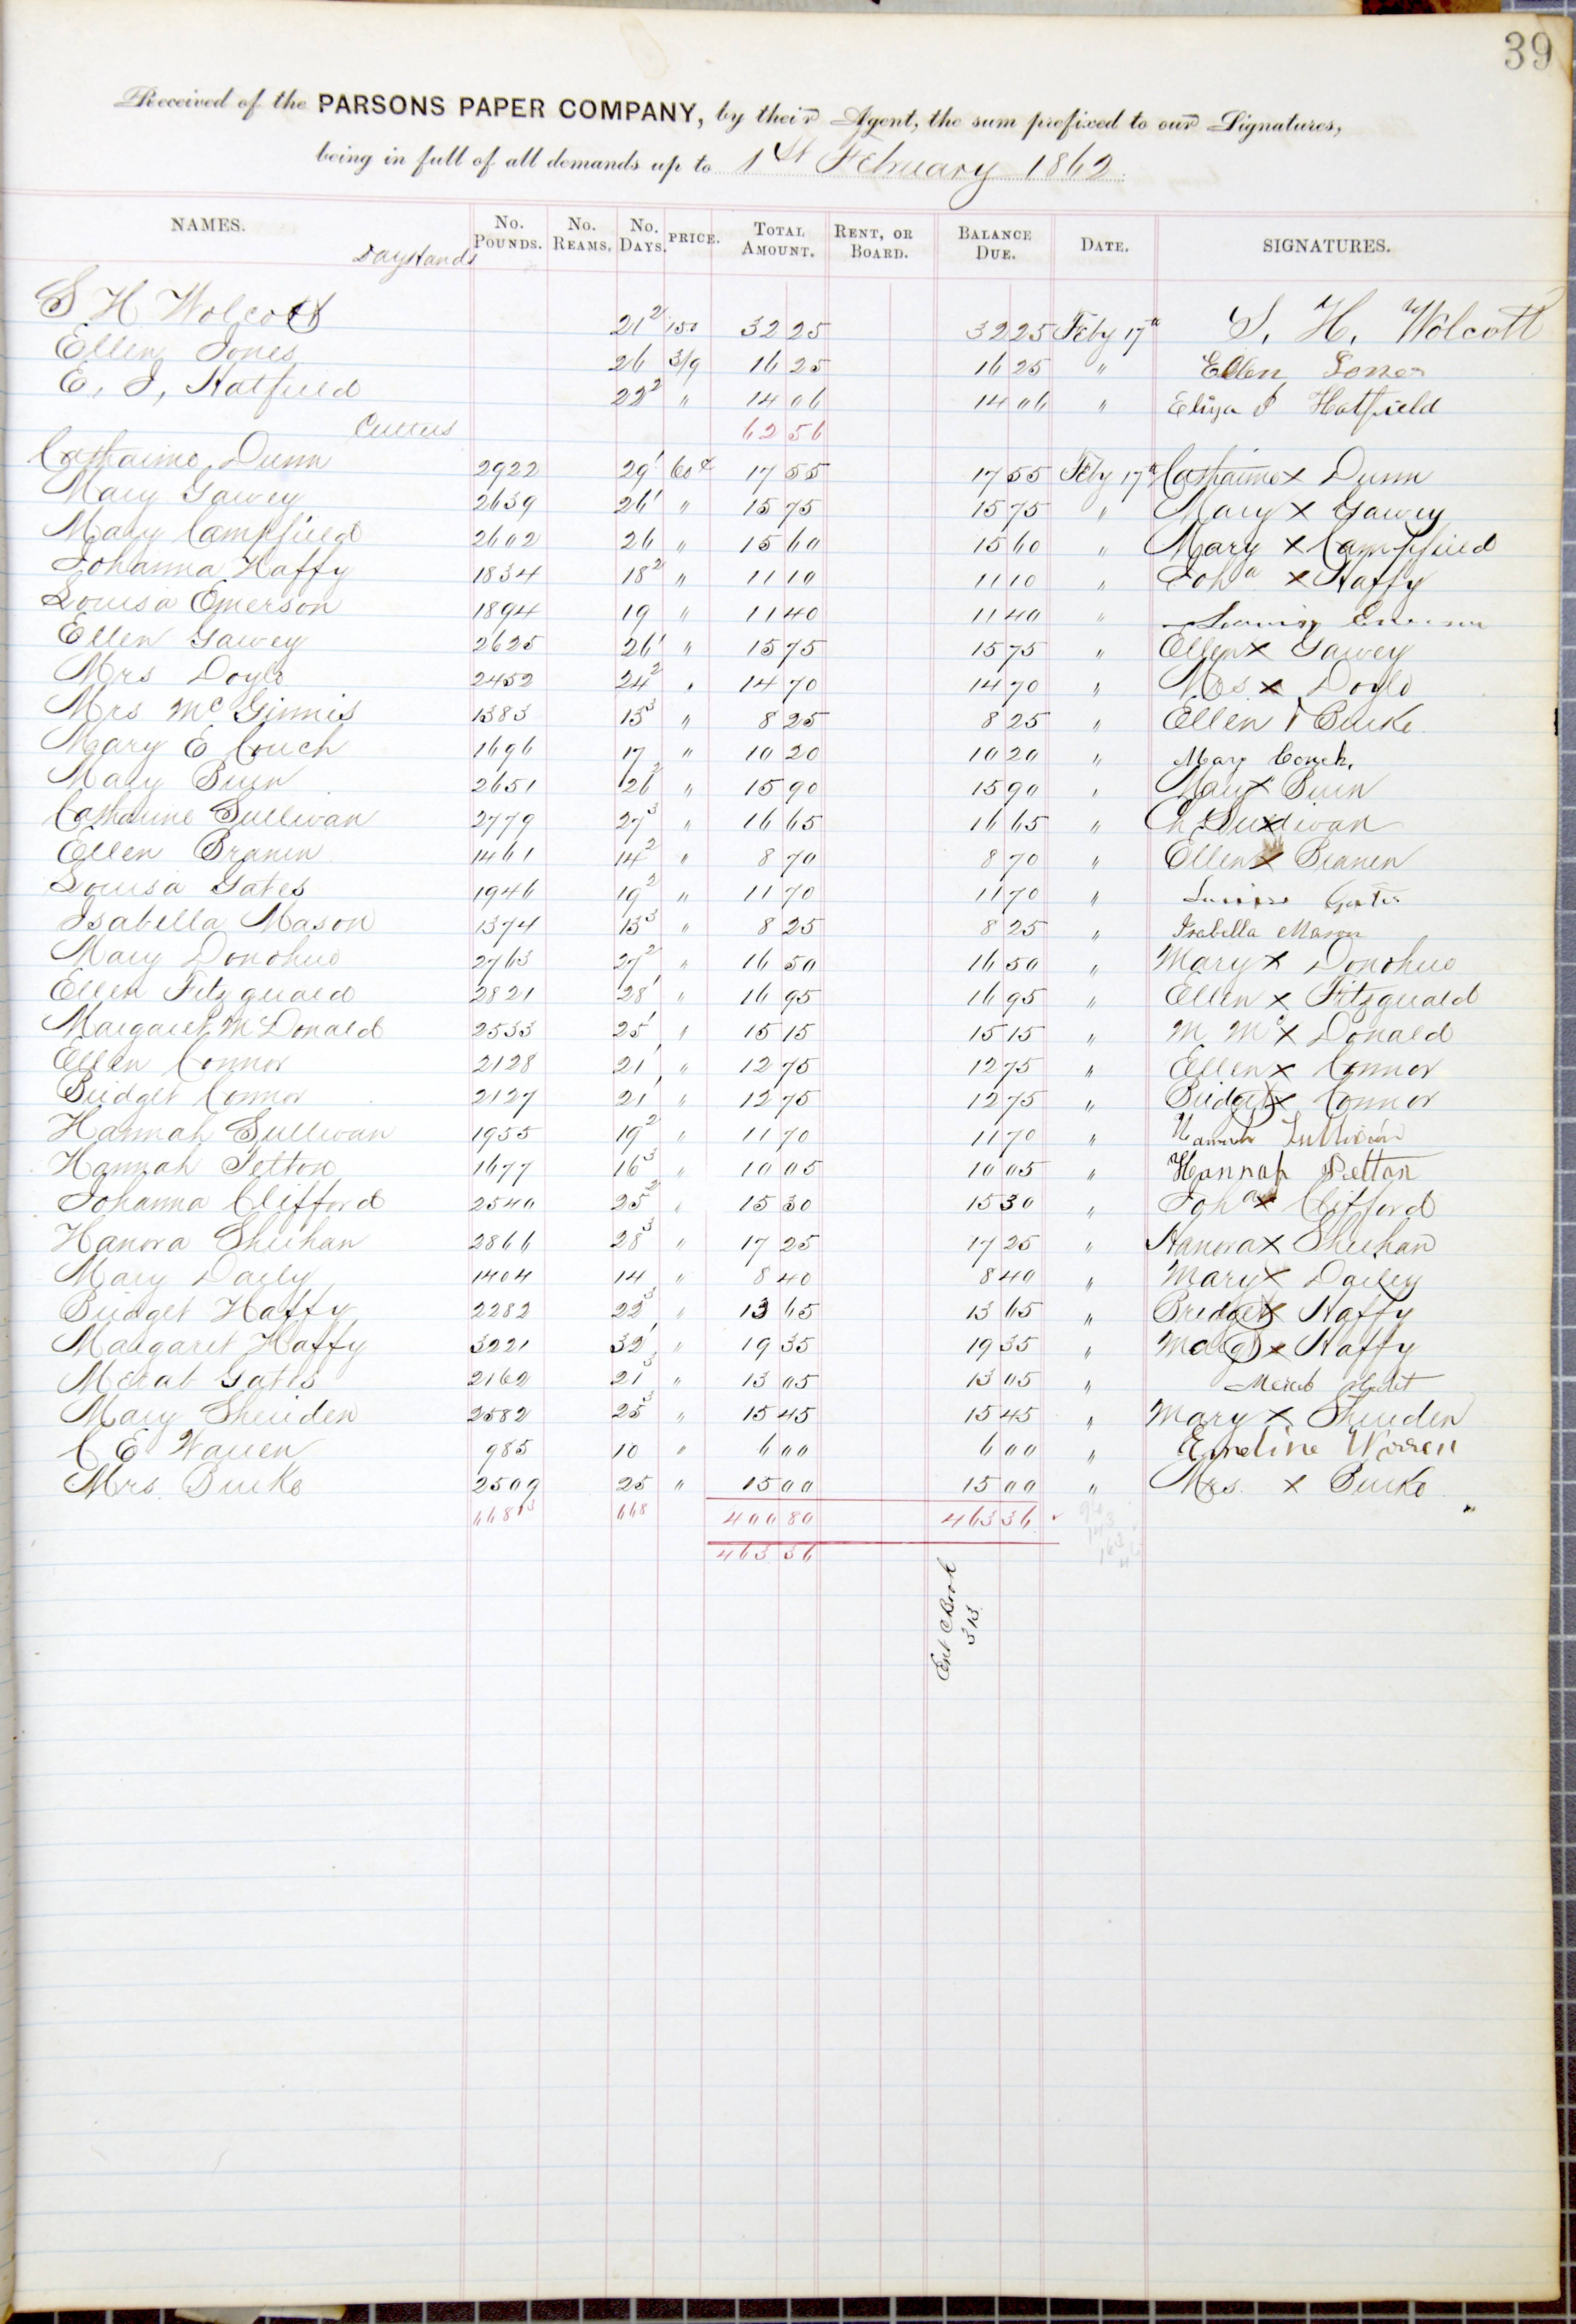 39
Received of the PARSONS PAPER COMPANY, by their Agent, the sum prefixed to our Signatures,
being in full of all demands up to 1st February 1862.
NAMES. No. POUNDS. No. REAMS. No. DAYS. PRICE. TOTAL AMOUNT. RENT, OR BOARD. BALANCE DUE. DATE. SIGNATURES.
Day Hands
S H Wolcott 21 2 150 32 25 32 25 Feby 17th S. H. Wolcott
Ellen Jones 26 3/9 16 25 16 25 " Ellen Jones
E, J, Hatfield 22 2 " 14 06 14 06 " Eliza J Hatfield
Cutters 62 56
Catharine Dunn 2922 29 1 60c 17 55 17 55 Feby 17th Catharine x Dunn
Mary Garvey 2639 26 1 " 15 75 15 75 " Mary x Garvey
Mary Campfield 2602 26 " 15 60 15 60 " Mary x Campfield
Johanna Haffy 1834 18 2 " 11 10 11 10 " Joha x Haffy
Louisa Emerson 1894 19 " 11 40 11 40 " Emerson
Ellen Garvey 2625 26 1 " 15 75 15 75 " Ellen x Garvey
Mrs Doyle 2452 24 2 " 14 70 14 70 " Mrs x Doyle
Mrs McGinnis 1383 13 3 " 8 25 8 25 " Ellen Burke
Mary E Couch 1696 17 " 10 20 10 20 " Mary Couch.
Mary Burn 2651 26 2 " 15 90 15 90 " Mary x Burn
Catharine Sullivan 2779 27 3 " 16 65 16 65 " Ch Sullivan
Ellen Branen 1461 14 2 " 8 70 8 70 " Ellen x Branen
Louisa Gates 1946 19 2 " 11 70 11 70 " Louisa Gates
Isabella Mason 1374 13 3 " 8 25 8 25 " Isabella Mason
Mary Donohue 2763 27 2 " 16 50 16 50 " Mary x Donohue
Ellen Fitzgerald 2821 28 1 " 16 95 16 95 " Ellen x Fitzgerald
Margaret McDonald 2533 25 1 " 15 15 15 15 " M Mc x Donald
Ellen Connor 2128 21 1 " 12 75 12 75 " Ellen x Connor
Bridget Connor 2127 21 1 " 12 75 12 75 " Bridget x Connor
Hannah Sullivan 1955 19 2 " 11 70 11 70 " Hannah Sullivan
Hannah Pelton 1677 16 3 " 10 05 10 05 " Hannah Pelton
Johanna Clifford 2540 25 2 " 15 30 15 30 " Joha x Clifford
Hanora Sheehan 2866 28 3 " 17 25 17 25 " Hanora x Sheehan
Mary Daily 1404 14 " 8 40 8 40 " Mary x Dailey
Bridget Haffy 2282 22 3 " 13 65 13 65 " Bridget x Haffy
Margaret Haffy 3221 32 1 " 19 35 19 35 " Margt x Haffy
Merab Gates 2162 21 3 " 13 05 13 05 " Merab
Mary Sheriden 2582 25 3 " 15 45 15 45 " Mary x Sheriden
C E Warren 985 10 " 6 00 6 00 " Emeline Warren
Mrs Burke 2509 25 " 15 00 15 00 " Mrs. x Burke
668 400 80 463 36
463 36
Ent C Book
313